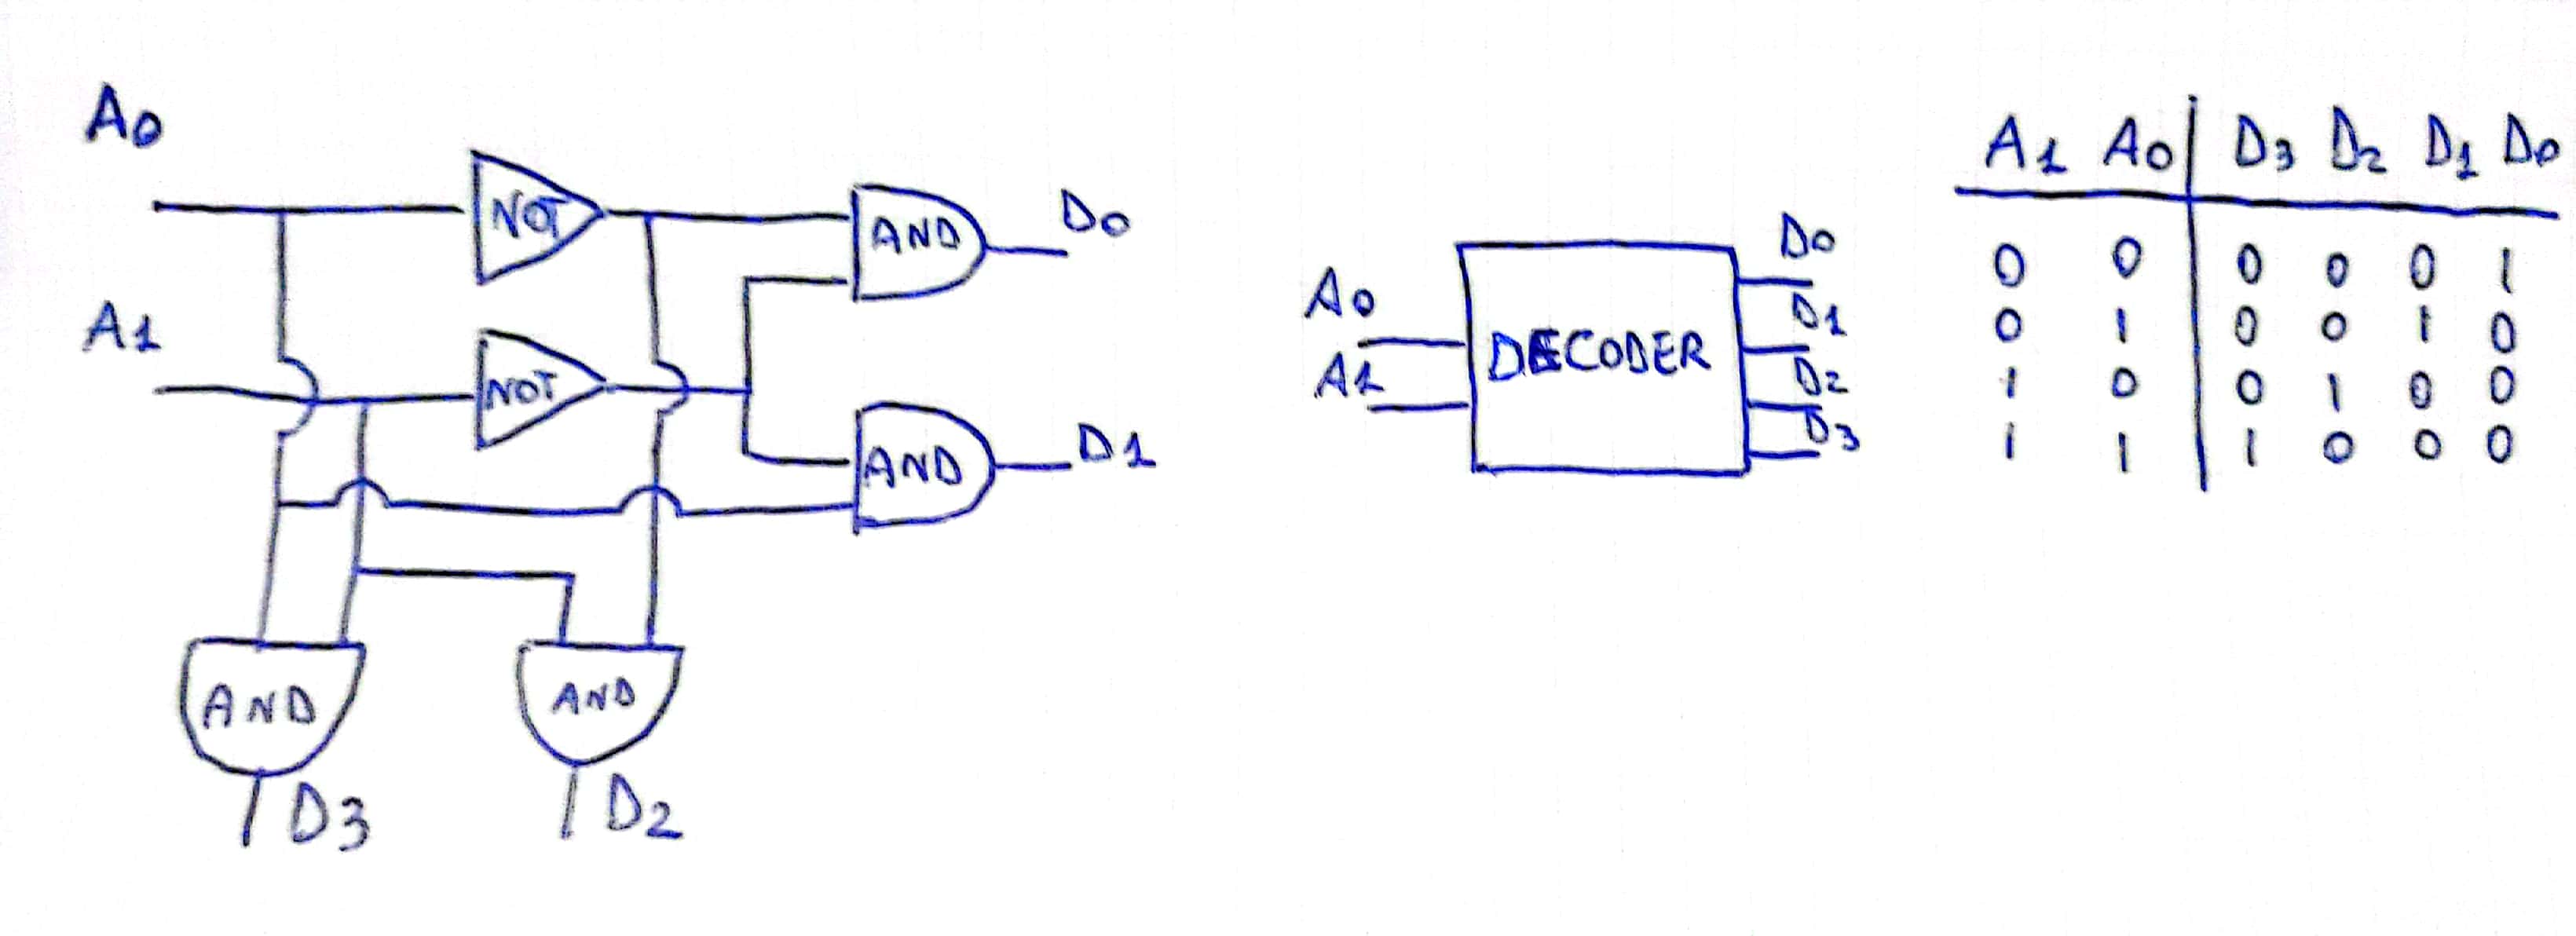 A0
NOT
AND
D0
A1
NOT
AND
D1
AND
AND
D3
D2
A0
A1
DECODER
D0
D1
D2
D3
A1 A0 D3 D2 D1 D0
0 0 0 0 0 1
0 1 0 0 1 0
1 0 0 1 0 0
1 1 1 0 0 0